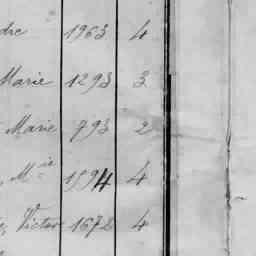 dre 1963 4
Marie 1293 3
Marie 793 2
Mie 1594 4
Victor 1672 4